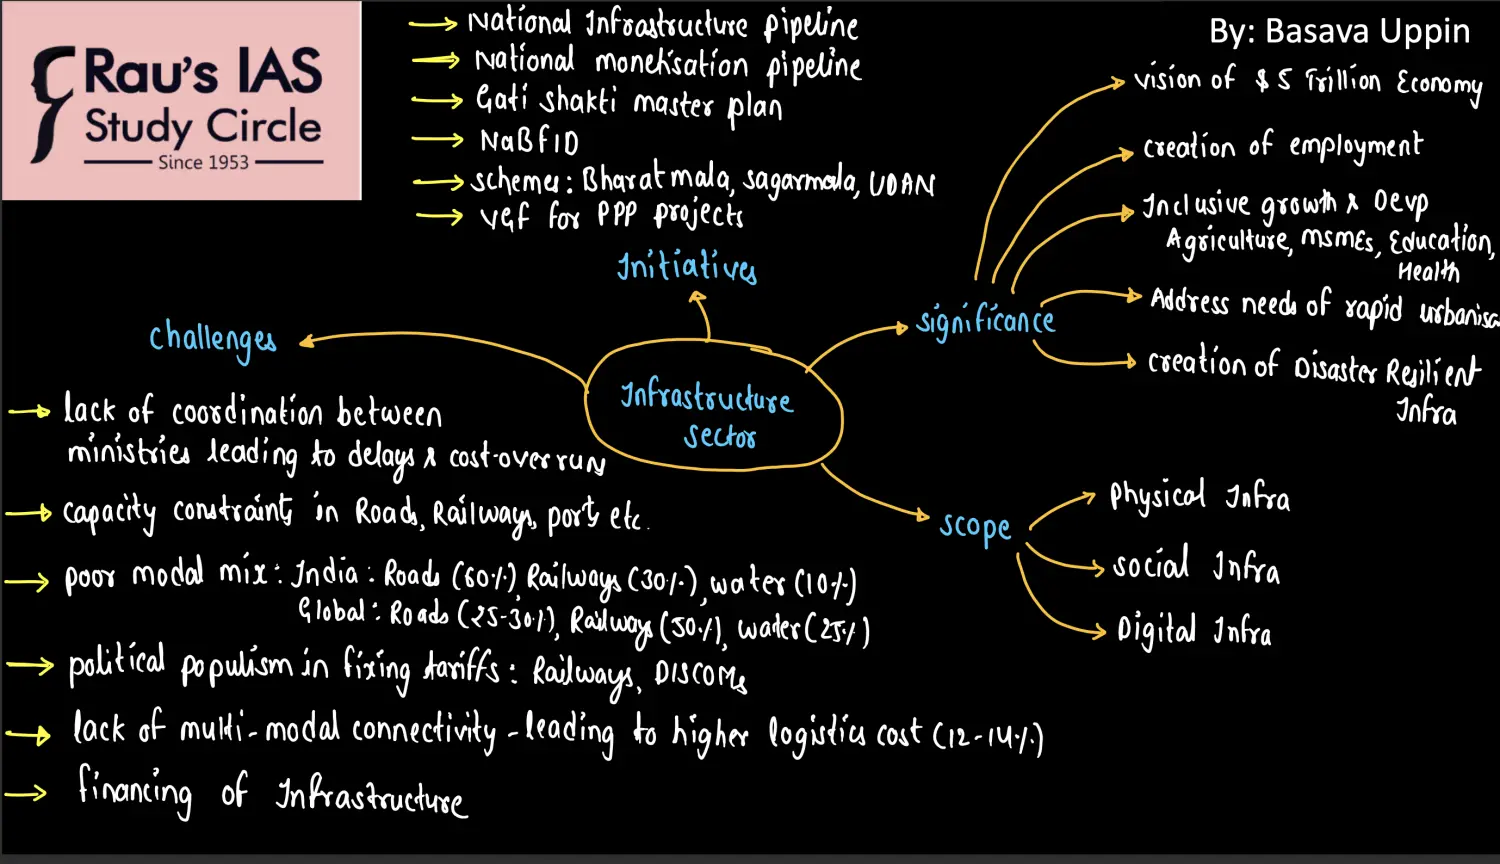 Rau's IAS
Study Circle
Since 1953
By: Basava Uppin
National Infrastructure pipeline
National monetisation pipeline
Gati Shakti master plan
NaBFID
schemes: Bharatmala, sagarmala, UDAN
VGF for PPP projects
Initiatives
vision of $ 5 Trillion Economy
creation of employment
Inclusive growth & Devp
Agriculture, MSMEs, Education,
Health
Address needs of rapid urbanisa
creation of Disaster Resilient
Infra
significance
Infrastructure
sector
challenges
lack of coordination between
ministries leading to delays & cost-overrun
capacity constraints in Roads, Railways, ports etc.
poor modal mix: India: Roads (60%), Railways (30%), water (10%)
Global: Roads (25-30%), Railways (50%), water (25%)
political populism in fixing tariffs: Railways, DISCOMs
lack of multi-modal connectivity - leading to higher logistics cost (12-14%)
financing of Infrastructure
scope
physical Infra
social Infra
Digital Infra